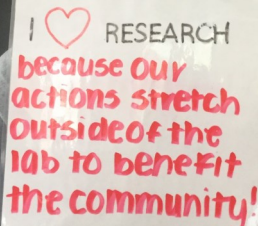 I ♡ RESEARCH
because our
actions stretch
outside of the
lab to benefit
the community!